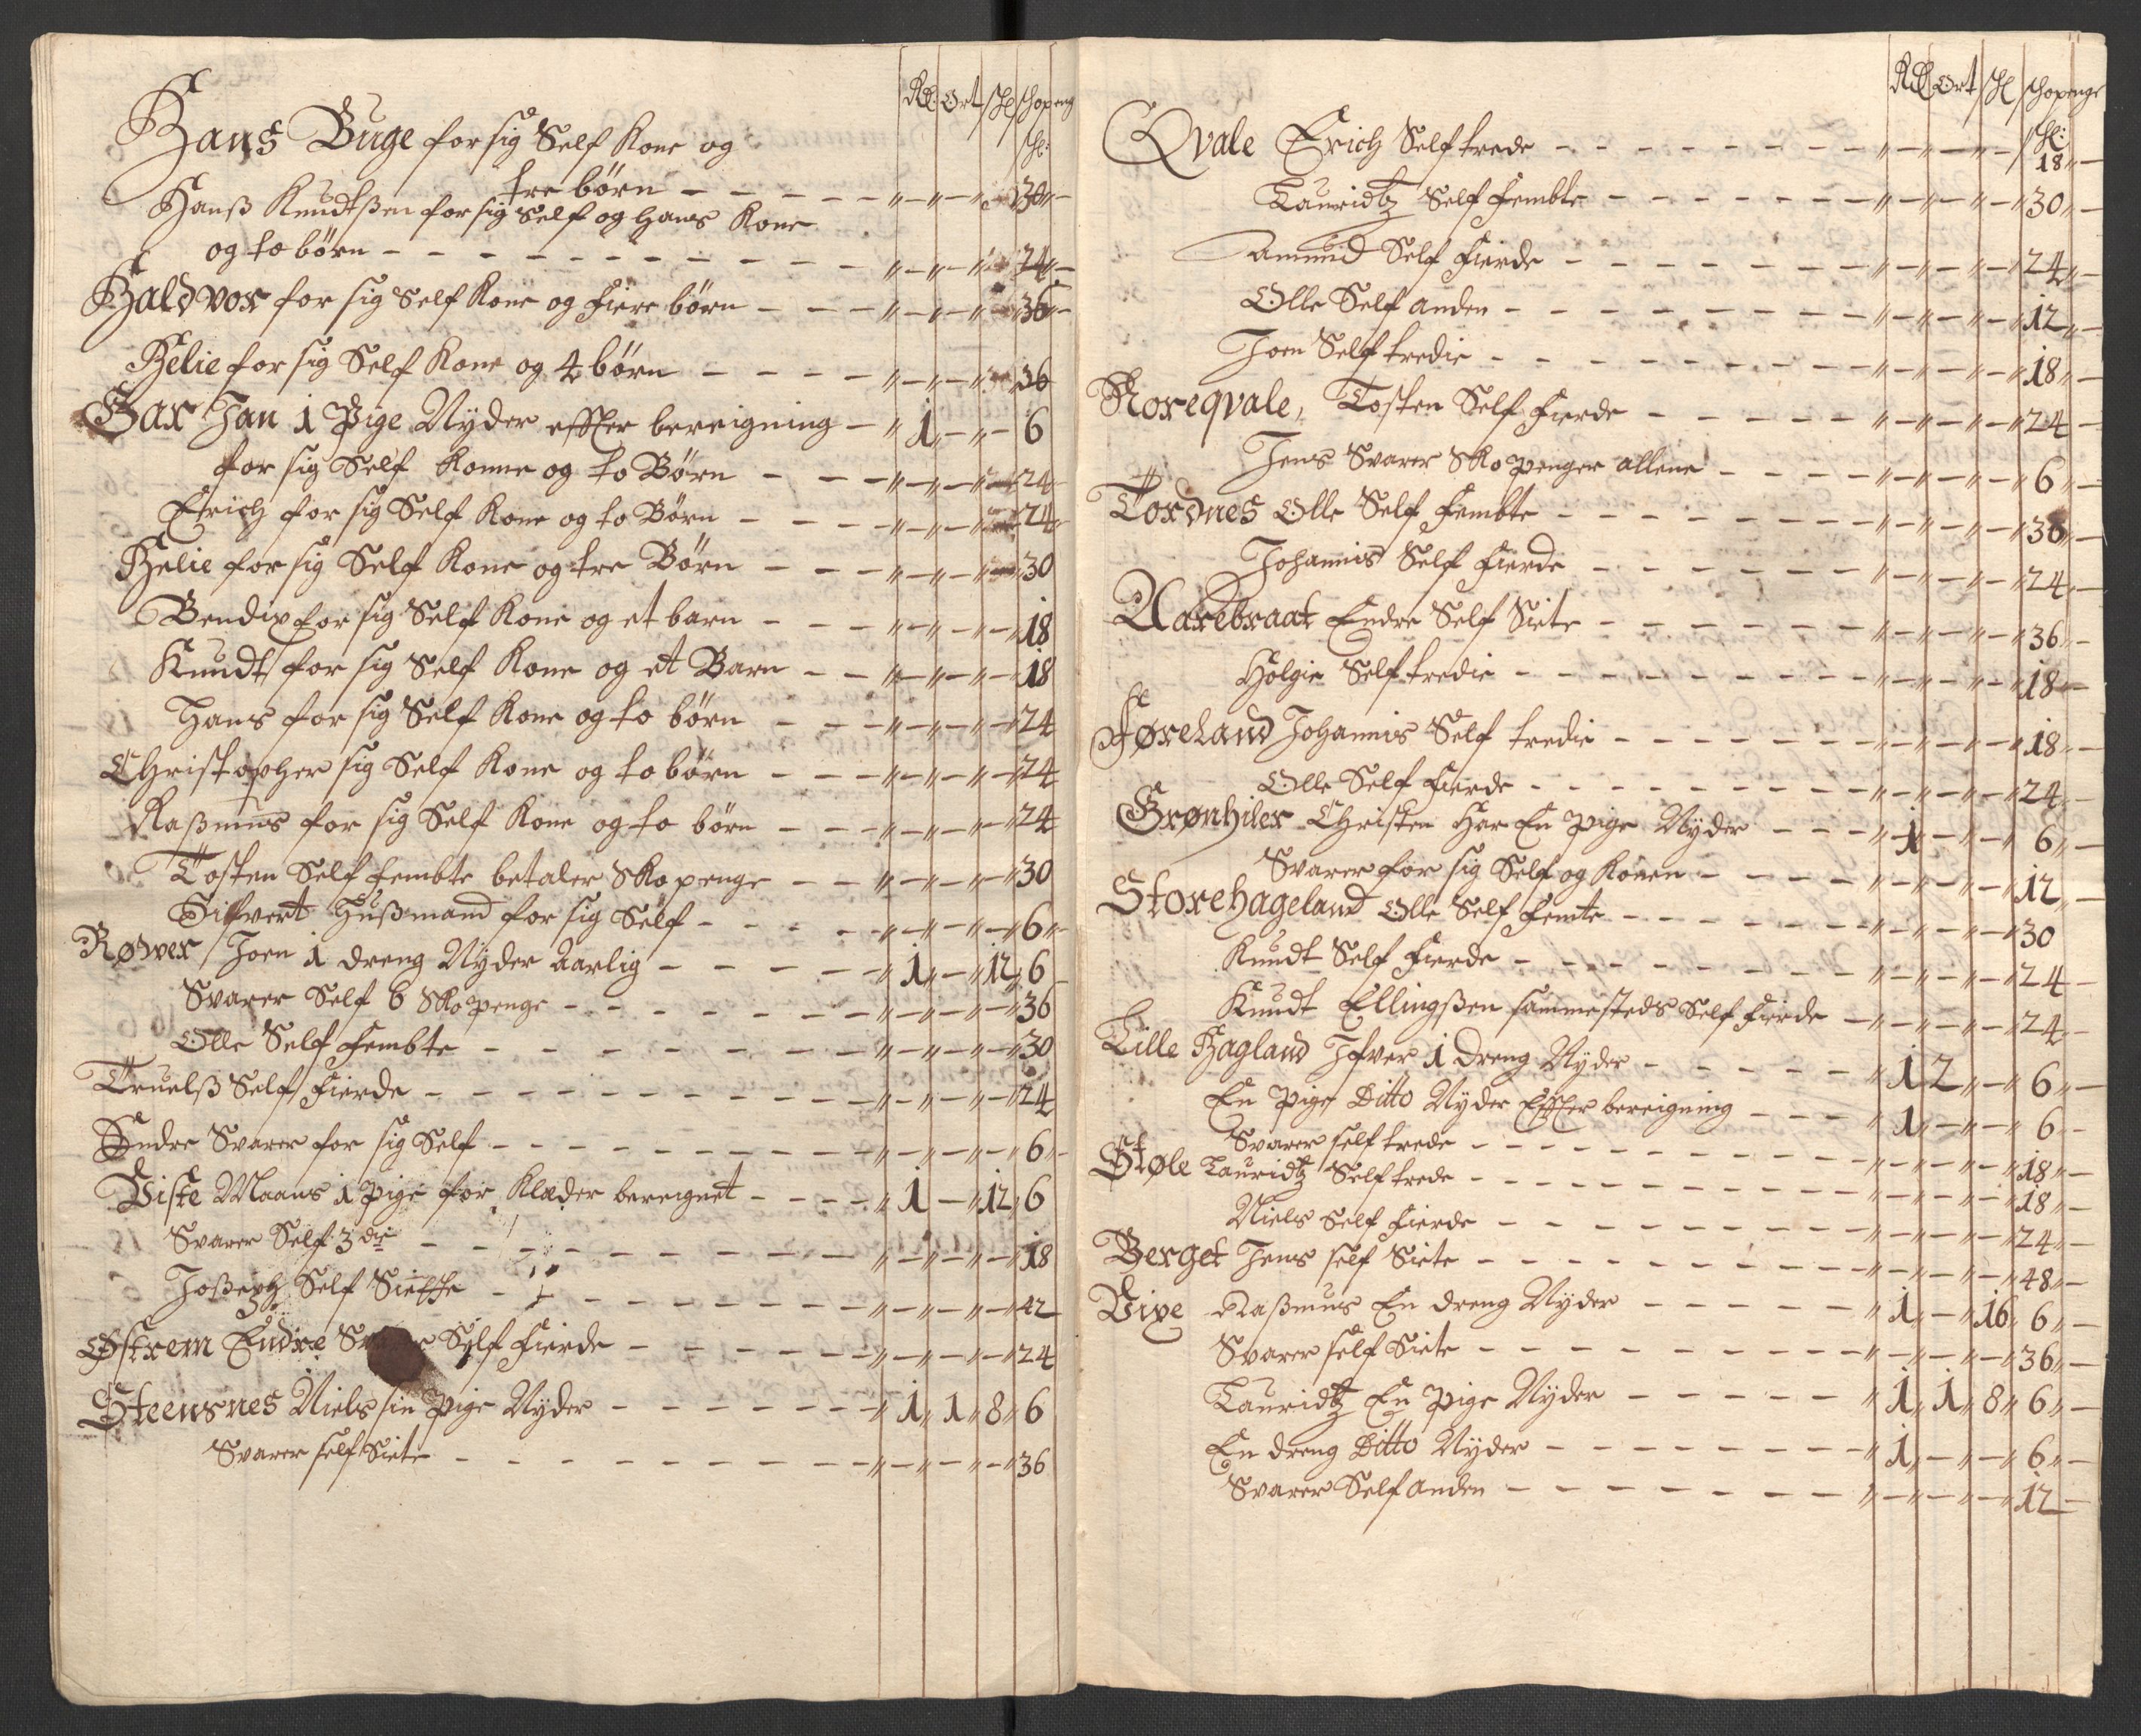 Rdl Ort sl schopeng
sl:
Hans Buge for sig Self Kone og
tre børn — — — — „—„—„ 30„—
Hanß Knudtßen for sig Self og hans Kone
og to børn — — — — „—„—„ 24„—
Haldvor for sig Self Kone og Fiere børn — — — „—„—„ 36„—
Helie for sig Self Kone og 4 børn — — — — „—„—„ 36
Gar Jan 1 Pige Nyder effter bereigning — „ 1„—„— 6
for sig Self Konne og to Børn — — — „—„—„—24
Erich for sig Self Kone og to Børn — — — „—„—„—24„
Helie for sig Self Kone og tre Børn — — — „—„—„—30
Bendix for sig Self Kone og et barn — — — „—„—„—18
Knudt for sig Self Kone og et Barn — — „—„—„—18
Hans for sig Self Kone og to børn — — — „—„—„—24
Christopher sig Self Kone og to børn — — — „—„—„—24
Raßmus for sig Self Kone og to børn — — — „—„—„—24
Tosten Self Fembte betaler Skopenge — — „—„—„—30
Sifvert Hußmand for sig Self — — — — „—„—„—6„
Røwer Joen 1 dreng Nyder Aarlig — — — — „ 1„—„12„6
Svarer Self 6 Skopenge — — — — — „—„—„—36
Olle Self Fembte — — — — — — „—„—„—30
Truelß Self Fierde — — — — — — „—„—„—24
Endre Svarer for sig Self — — — — — „—„—„—„6„
Viste Maans 1 pige for Klæder beregnet — — — — „ 1 —„12„6
Svarer Self 3die — — — — — — „—„—„—18
Joßeph Self Sieffte — — — — — — „—„—„—42
Østrem Endre Self Fierde — — — — — „—„—„—24
Steensnes Niels sin pige Nyder — — — — — „ 1„ 1„ 8„ 6
Svarer self Siete — — — — — — „—„—„—36
Rdl Ort sl schopenge
sl:
Qvale Erich Self trede — — — — — — „—„—„— 18„—
Lauridtz Self Fembte — — — — — „—„—„—„30„—
Amund Self Fierde — — — — — — „—„—„—„24„—
Olle Self anden — — — — — — „—„—„—„12„—
Joen Self tredie — — — — — — „—„—„—„18„—
Noreqvale, Tosten Self Fierde — — — — — „—„—„—„24„—
Jens Svarer Skopenger allene — — — — „—„—„—„6„—
Tordnes Olle Self Fembte — — — — — — „—„—„—„30„—
Johannis Self Fierde — — — — — „—„—„—„24„—
Aarebraat Endre Self Siete — — — — — „—„—„—„36„—
Holgie Self tredie — — — — — — „—„—„—„18„—
Føreland Johannis Self tredie — — — — — „—„—„—„18„—
Olle Self Fierde — — — — — — „—„—„—„24„—
Grønhiler Christen Har En pige Nyder — — — „ 1„—„—„ 6„—
Svarer for sig Self og Konen — — — — „—„—„—„12„—
Storehageland Olle Self Femte — — — — „—„—„—„30
Knudt Self Fierde — — — — — — „—„—„—„24„—
Knudt Ellingßen sammesteds Self Fierde — „—„—„—„24„—
Lille Hagland Ifver 1 dreng Nyder — — — — „ 1 2„—„6„—
En Pige Ditto Nyder Effter bereigning — — — „ 1„—„—„ 6„—
Svarer self trede — — — — — — „—„—„—„18„—
Støle Lauridtz Self trede — — — — — — „—„—„—„18„—
Niels Self Fierde — — — — — — „—„—„—„24„—
Berget Jens self Siete — — — — — — „—„—„—„48„—
Vixe Raßmus En dreng Nyder — — — — — „ 1„—„16„ 6„—
Svarer self Siete — — — — — — „—„—„—„36„—
Lauridtz En pige Nyder — — — — — „ 1„ 1„ 8„ 6„—
En dreng Ditto Nyder — — — — — — „ 1„—„—„ 6„—
Svarer Self anden — — — — — — „—„—„—„12„—